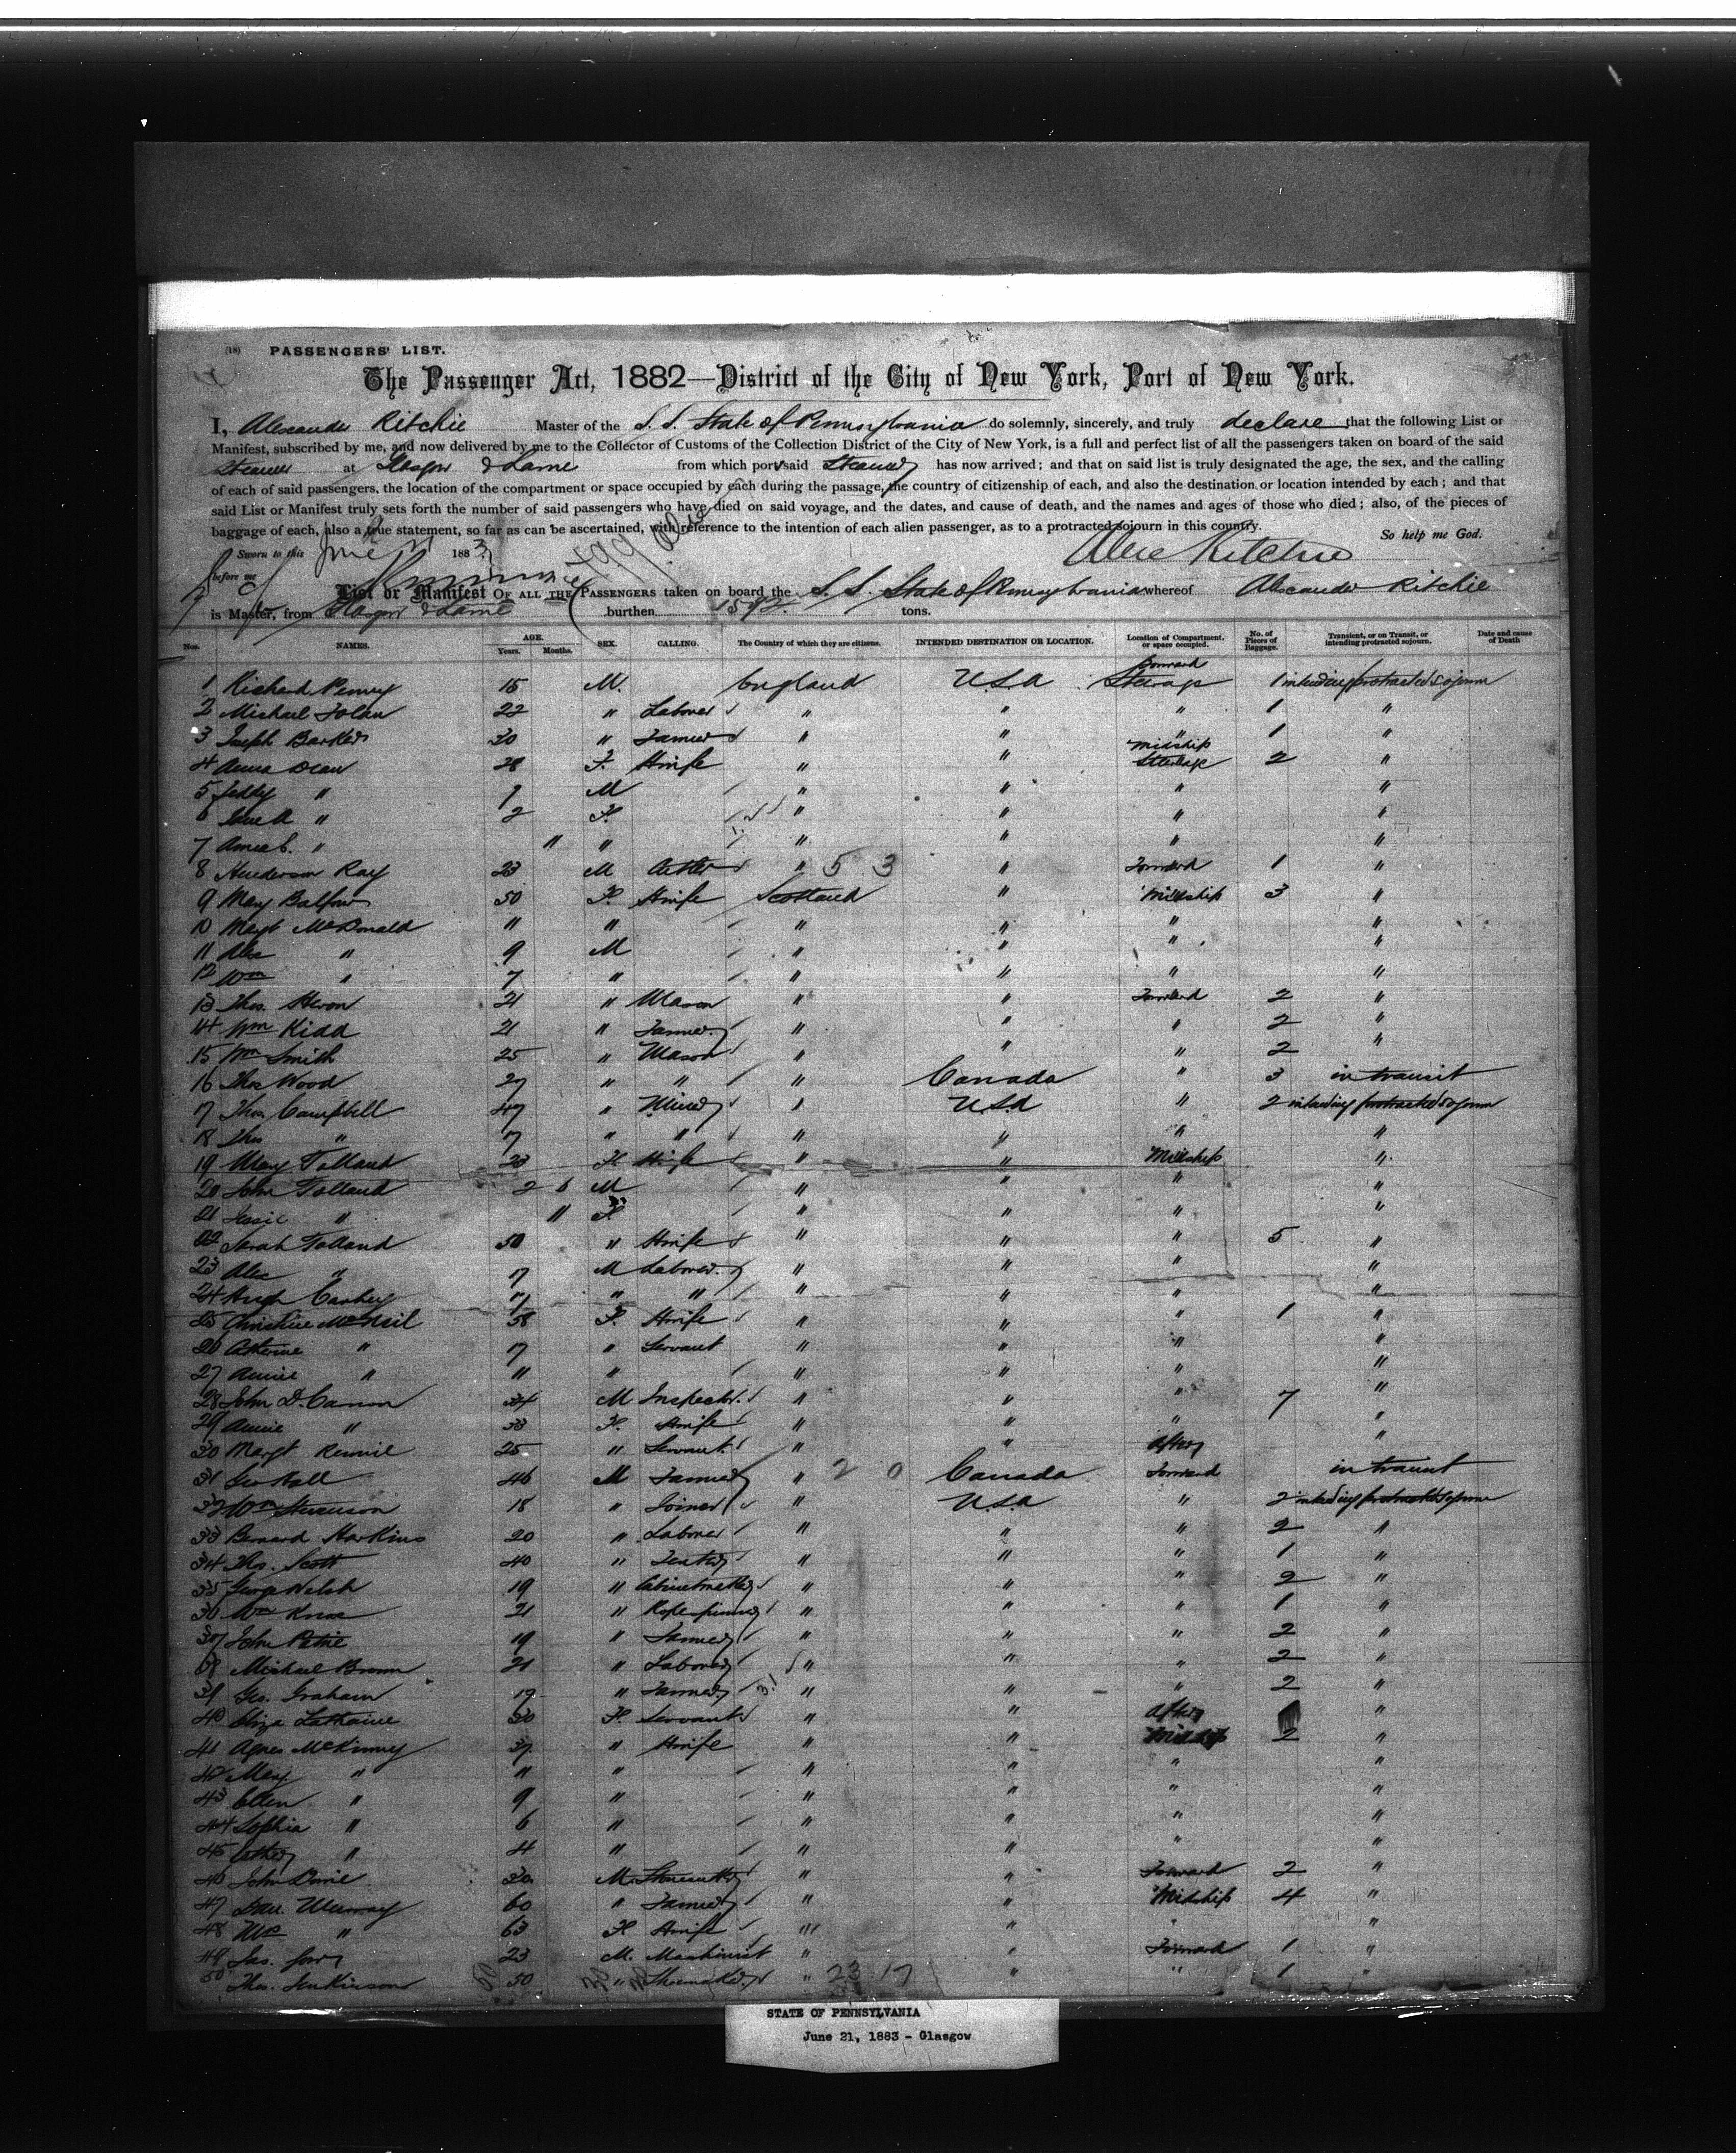 (18) PASSENGERS' LIST.
The Passenger Act, 1882—District of the City of New York, Port of New York.
I, Alexander Ritchie Master of the S. S. State of Pennsylvania do solemnly, sincerely, and truly declare that the following List or
Manifest, subscribed by me, and now delivered by me to the Collector of Customs of the Collection District of the City of New York, is a full and perfect list of all the passengers taken on board of the said
Steamer at Glasgow & Larne from which port said Steamer has now arrived; and that on said list is truly designated the age, the sex, and the calling
of each of said passengers, the location of the compartment or space occupied by each during the passage, the country of citizenship of each, and also the destination or location intended by each; and that
said List or Manifest truly sets forth the number of said passengers who have died on said voyage, and the dates, and cause of death, and the names and ages of those who died; also, of the pieces of
baggage of each, also a true statement, so far as can be ascertained, with reference to the intention of each alien passenger, as to a protracted sojourn in this country. So help me God.
Sworn to this June 21 1883 Alex Ritchie
before me
List or Manifest OF ALL THE PASSENGERS taken on board the S. S. State of Pennsylvania whereof Alexander Ritchie
is Master, from Glasgow & Larne burthen tons.
Nos. NAMES. AGE. Years. Months. SEX. CALLING. The Country of which they are citizens. INTENDED DESTINATION OR LOCATION. Location of Compartment, or space occupied. No. of Pieces of Baggage. Transient, or on Transit, or intending protracted sojourn. Date and cause of Death
1 Richard Penny 15 M. England U.S.A Forward Steerage 1 intending protracted sojourn
2 Michael Tolan 22 " Laborer " " " 1 "
3 Joseph Barker 30 " Farmer " " " 1 "
4 Anna Dean 28 F. Hwife " " Midship Steerage 2 "
5 " M " " " "
6 " 2 F. " " " "
7 " 11 " " " " "
8 Henderson Ray 23 M " 5 3 " Forward 1 "
9 Mary Balfour 50 F. Hwife Scotland " Midship 3 "
10 Margt McDonald 11 " " " " "
11 Alex " 9 M " " " "
12 Wm " 7 " " " " "
13 Thos. Heron 21 " Mason " " Forward 2 "
14 Wm Kidd 21 " Farmer " " " 2 "
15 Wm Smith 25 " Mason " " " 2 "
16 Thos Wood 27 " " " Canada " 3 in transit
17 Thos Campbell 47 " Miner " U.S.A " 2 intending protracted sojourn
18 Thos " " " " " " "
19 Mary Tolland 23 F Hwife " " Midship "
20 John Tolland 2 6 M " " " "
21 Jessie " 11 F. " " " "
22 Sarah Tolland 50 " Hwife " " " 5 "
23 Alex " 17 M Laborer " " " "
24 Hugh " " " " " "
25 Christine McNeil 58 F. Hwife " " " 1 "
26 " 17 " Servant " " " "
27 Annie " 11 " " " " "
28 John D. Cannon 34 M Inspector " " " 7 "
29 Annie " 33 F. Hwife " " " "
30 Margt Rennie 25 " Servant " " After "
31 Geo Hall 46 M Farmer " 2 0 Canada Forward in transit
32 Wm Stevenson 18 " Joiner " U.S.A " 2 intending protracted sojourn
33 Bernard Harkins 20 " Laborer " " " 2 "
34 Thos. Scott 40 " " " " 1 "
35 George Welsh 19 " Cabinetmaker " " " 2 "
36 Wm Knox 21 " Ropespinner " " " 1 "
37 John Petrie 19 " Farmer " " " 2 "
38 Michael Brown 21 " Laborer " " " 2 "
39 Geo. Graham 19 " Farmer " " " 2 "
40 Eliza 30 F. Servant " " After "
41 Agnes McKinney 37 " Hwife " " Midship 2 "
42 Mary " 11 " " " " "
43 Ellen " 9 " " " " "
44 Sophia " 6 " " " " "
45 " 4 " " " " "
46 John 30 M. Stonecutter " " Forward 2 "
47 Dan Murray 60 " Farmer " " Midship 4 "
48 Mrs " 63 F Hwife " " " "
49 Jas. 23 M. Machinist " " Forward 1 "
50 Thos. Jenkinson 50 " Shoemaker " 23 17 " " 1 "
STATE OF PENNSYLVANIA
June 21, 1883 - Glasgow